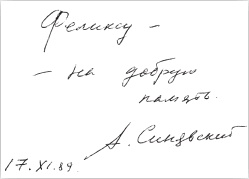 Феликсу –
– на добрую
память.
А. Синявский
17. XI. 89.